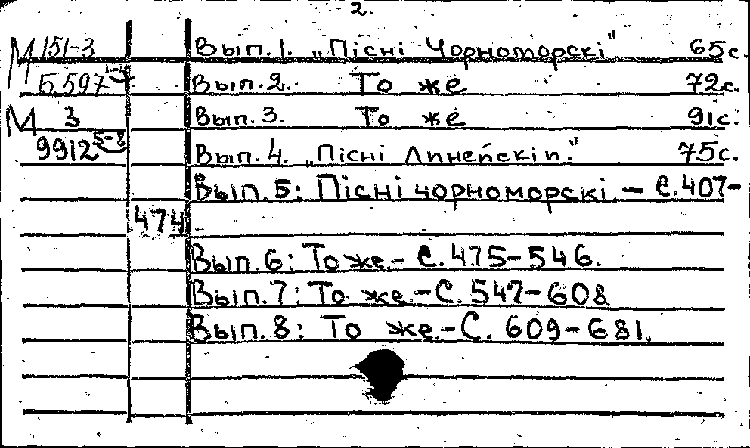 2.
М 151-3 Вып.1. „Пісні Чорноморскі" 65с.
Б 597 Вып.2. То же 72с.
М 3 Вып.3. То же 91с.
9912 5-8 Вып.4. „Пісні Линейскіи." 75с.
Вып.5: Пісні чорноморскі. — С.407-
474
Вып.6: То же.- С.475-546.
Вып.7: То же.-С. 547-608
Вып.8: То же.-С. 609-681.